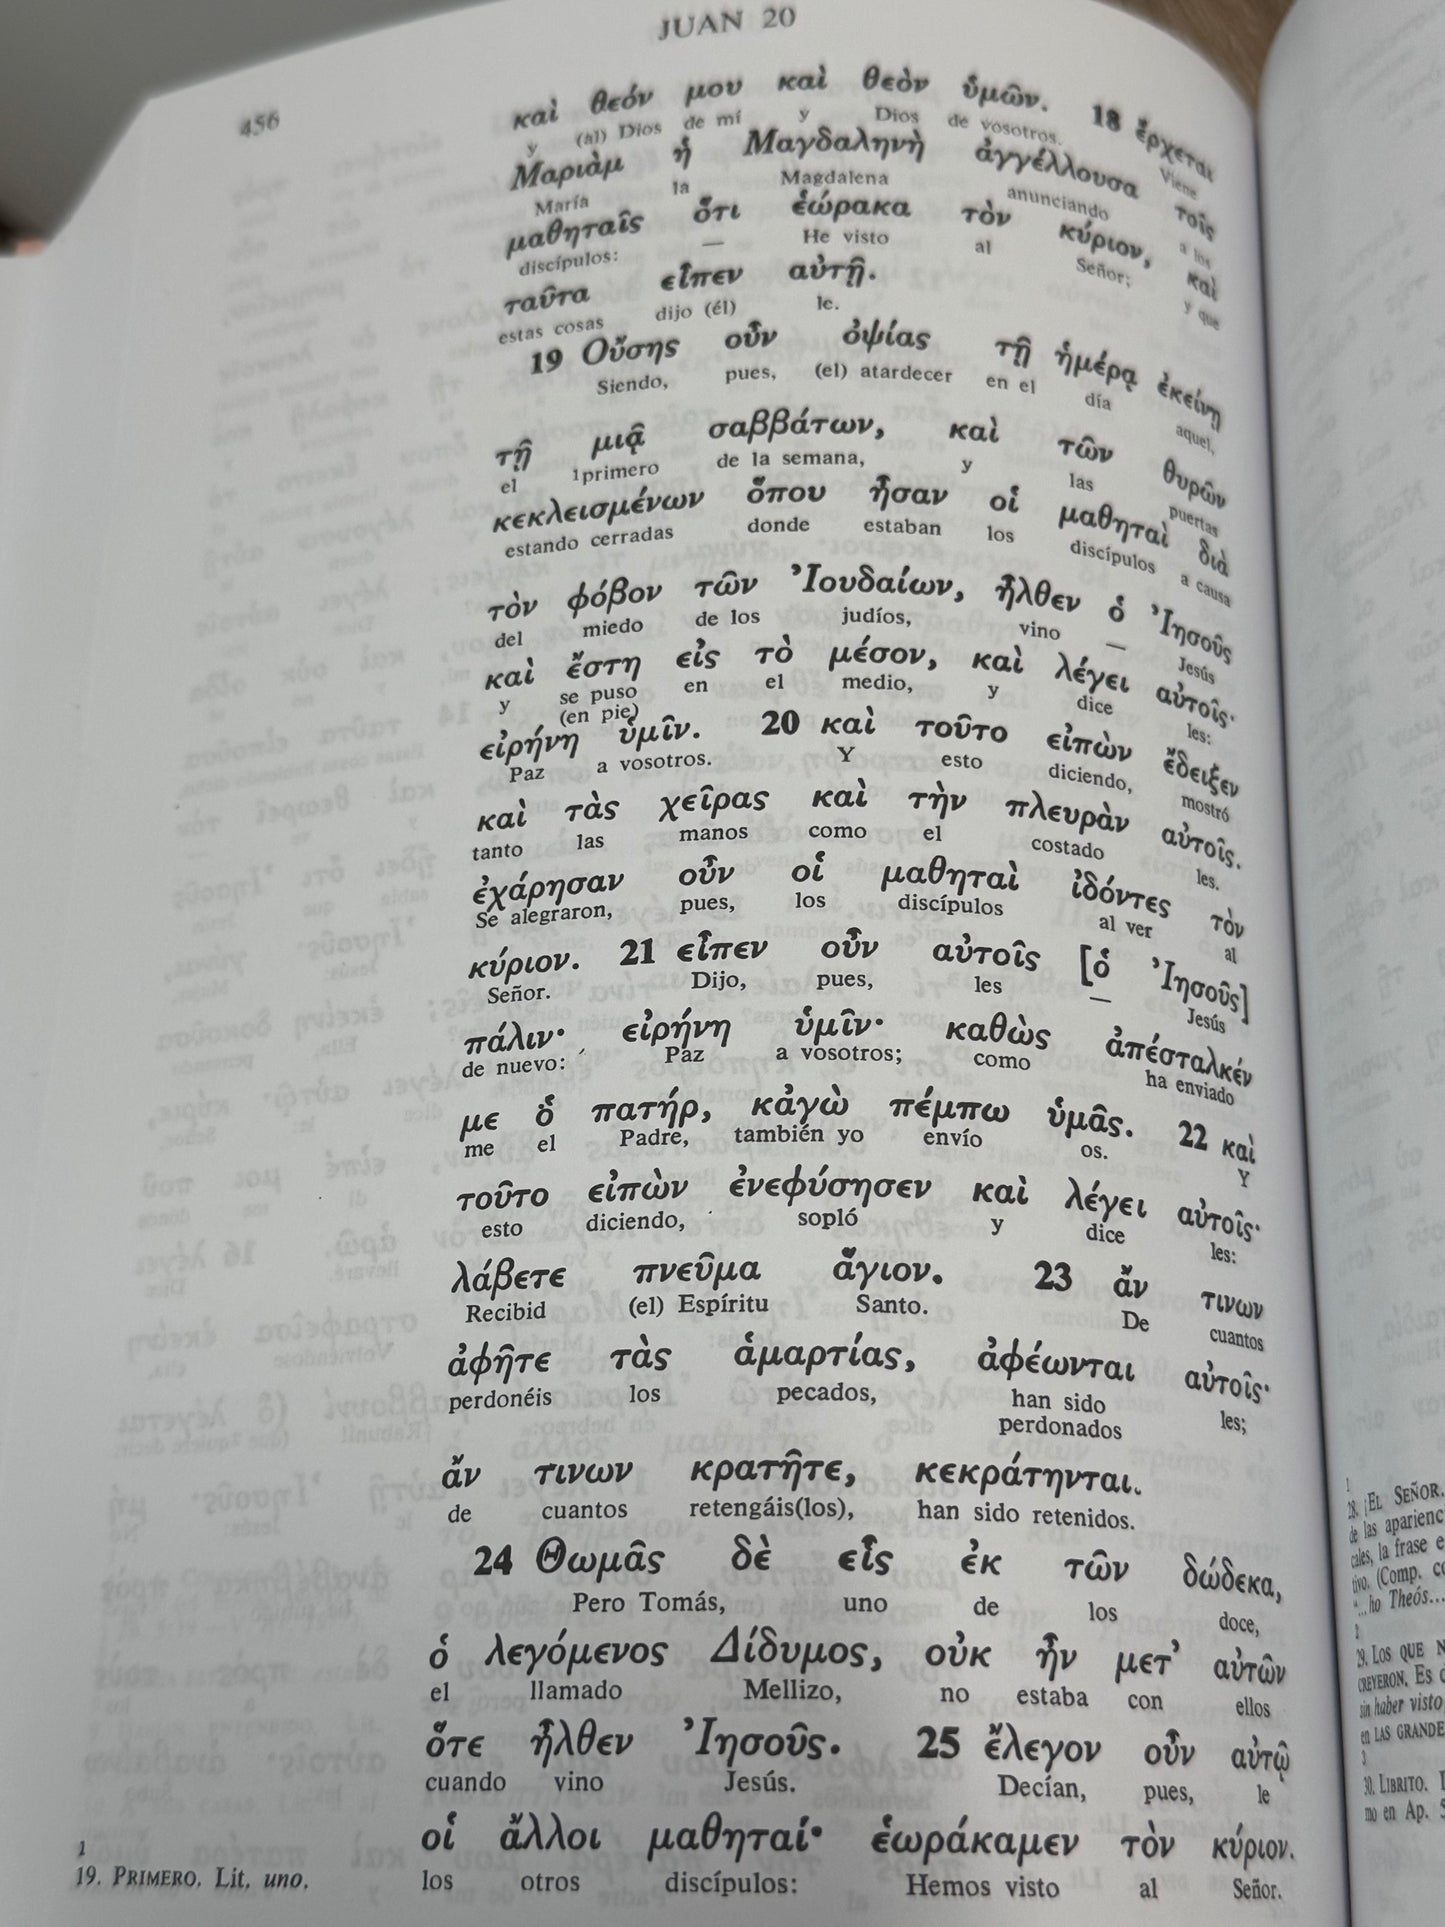 JUAN 20
456
καὶ θεόν μου καὶ θεὸν ὑμῶν. 18 ἔρχεται
y (al) Dios de mí y Dios de vosotros. Viene
Μαριὰμ ἡ Μαγδαληνὴ ἀγγέλλουσα τοῖς
María la Magdalena anunciando a los
μαθηταῖς ὅτι ἑώρακα τὸν κύριον, καὶ
discípulos: — He visto al Señor; y que
ταῦτα εἶπεν αὐτῇ.
estas cosas dijo (él) le.
19 Οὔσης οὖν ὀψίας τῇ ἡμέρᾳ ἐκείνῃ
Siendo, pues, (el) atardecer en el día aquel,
τῇ μιᾷ σαββάτων, καὶ τῶν θυρῶν
el 1primero de la semana, y las puertas
κεκλεισμένων ὅπου ἦσαν οἱ μαθηταὶ διὰ
estando cerradas donde estaban los discípulos a causa
τὸν φόβον τῶν Ἰουδαίων, ἦλθεν ὁ Ἰησοῦς
del miedo de los judíos, vino — Jesús
καὶ ἔστη εἰς τὸ μέσον, καὶ λέγει αὐτοῖς·
y se puso en el medio, y dice les:
(en pie)
εἰρήνη ὑμῖν. 20 καὶ τοῦτο εἰπὼν ἔδειξεν
Paz a vosotros. Y esto diciendo, mostró
καὶ τὰς χεῖρας καὶ τὴν πλευρὰν αὐτοῖς.
tanto las manos como el costado les.
ἐχάρησαν οὖν οἱ μαθηταὶ ἰδόντες τὸν
Se alegraron, pues, los discípulos al ver al
κύριον. 21 εἶπεν οὖν αὐτοῖς [ὁ Ἰησοῦς]
Señor. Dijo, pues, les — Jesús
πάλιν· εἰρήνη ὑμῖν· καθὼς ἀπέσταλκέν
de nuevo: Paz a vosotros; como ha enviado
με ὁ πατήρ, κἀγὼ πέμπω ὑμᾶς. 22 καὶ
me el Padre, también yo envío os. Y
τοῦτο εἰπὼν ἐνεφύσησεν καὶ λέγει αὐτοῖς·
esto diciendo, sopló y dice les:
λάβετε πνεῦμα ἅγιον. 23 ἄν τινων
Recibid (el) Espíritu Santo. De cuantos
ἀφῆτε τὰς ἁμαρτίας, ἀφέωνται αὐτοῖς·
perdonéis los pecados, han sido les;
perdonados
ἄν τινων κρατῆτε, κεκράτηνται.
de cuantos retengáis(los), han sido retenidos.
24 Θωμᾶς δὲ εἷς ἐκ τῶν δώδεκα,
Pero Tomás, uno de los doce,
ὁ λεγόμενος Δίδυμος, οὐκ ἦν μετ' αὐτῶν
el llamado Mellizo, no estaba con ellos
ὅτε ἦλθεν Ἰησοῦς. 25 ἔλεγον οὖν αὐτῷ
cuando vino Jesús. Decían, pues, le
οἱ ἄλλοι μαθηταί· ἑωράκαμεν τὸν κύριον.
los otros discípulos: Hemos visto al Señor.
1
19. PRIMERO. Lit. uno.
1
28. ¡EL SEÑOR.
de las
la frase
tivo. (Comp.
"...ho Theós...
2
29. LOS QUE
CREYERON. Es
sin haber visto
en LAS
3
30. LIBRITO.
mo en Ap.